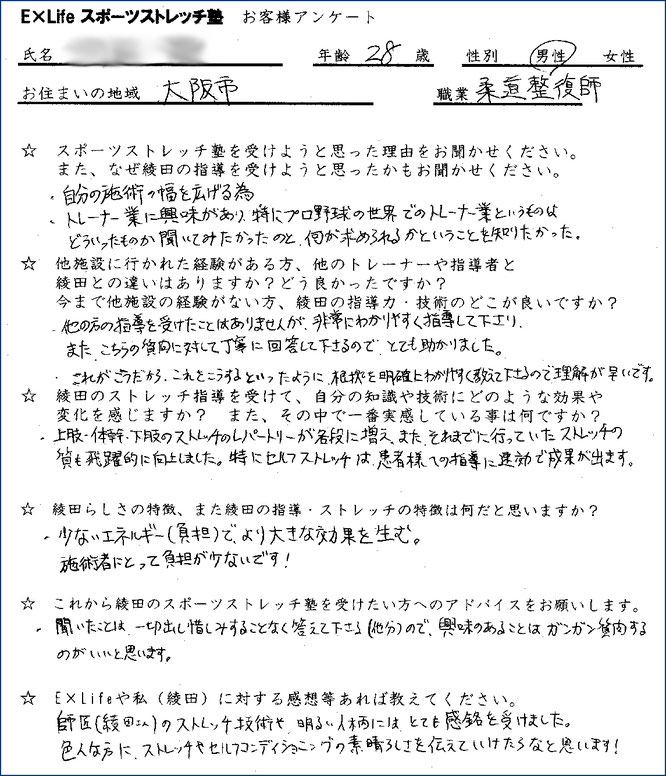 E×Life スポーツストレッチ塾 お客様アンケート
氏名 年齢 28 歳 性別 男性 女性
お住まいの地域 大阪市 職業 柔道整復師
☆ スポーツストレッチ塾を受けようと思った理由をお聞かせください。
また、なぜ綾田の指導を受けようと思ったかもお聞かせください。
・自分の施術の幅を広げる為
・トレーナー業に興味があり、特にプロ野球の世界でのトレーナー業というものは
どういったものか聞いてみたかったのと、何が求められるかということを知りたかった。
☆ 他施設に行かれた経験がある方、他のトレーナーや指導者と
綾田との違いはありますか？どう良かったですか？
今まで他施設の経験がない方、綾田の指導力・技術のどこが良いですか？
・他の方の指導を受けたことはありませんが、非常にわかりやすく指導して下さり、
また、こちらの質問に対して丁寧に回答して下さるので、とても助かりました。
・これがこうだから、これをこうするといったように、根拠を明確にわかりやすく教えて下さるので理解が早いです。
☆ 綾田のストレッチ指導を受けて、自分の知識や技術にどのような効果や
変化を感じますか？ また、その中で一番実感している事は何ですか？
・上肢・体幹・下肢のストレッチのレパートリーが各段に増え、また、それまでに行っていたストレッチの
質も飛躍的に向上しました。特にセルフストレッチは、患者様への指導に速効で成果が出ます。
☆ 綾田らしさの特徴、また綾田の指導・ストレッチの特徴は何だと思いますか？
・少ないエネルギー(負担)で、より大きな効果を生む。
施術者にとって負担が少ないです！
☆ これから綾田のスポーツストレッチ塾を受けたい方へのアドバイスをお願いします。
・聞いたことは、一切出し惜しみすることなく答えて下さる(他分)ので、興味のあることはガンガン質問する
のがいいと思います。
☆ E×Lifeや私（綾田）に対する感想等あれば教えてください。
師匠(綾田さん)のストレッチ技術や、明るい人柄には、とても感銘を受けました。
色んな方に、ストレッチやセルフコンディショニングの素晴らしさを伝えていけたらなと思います！